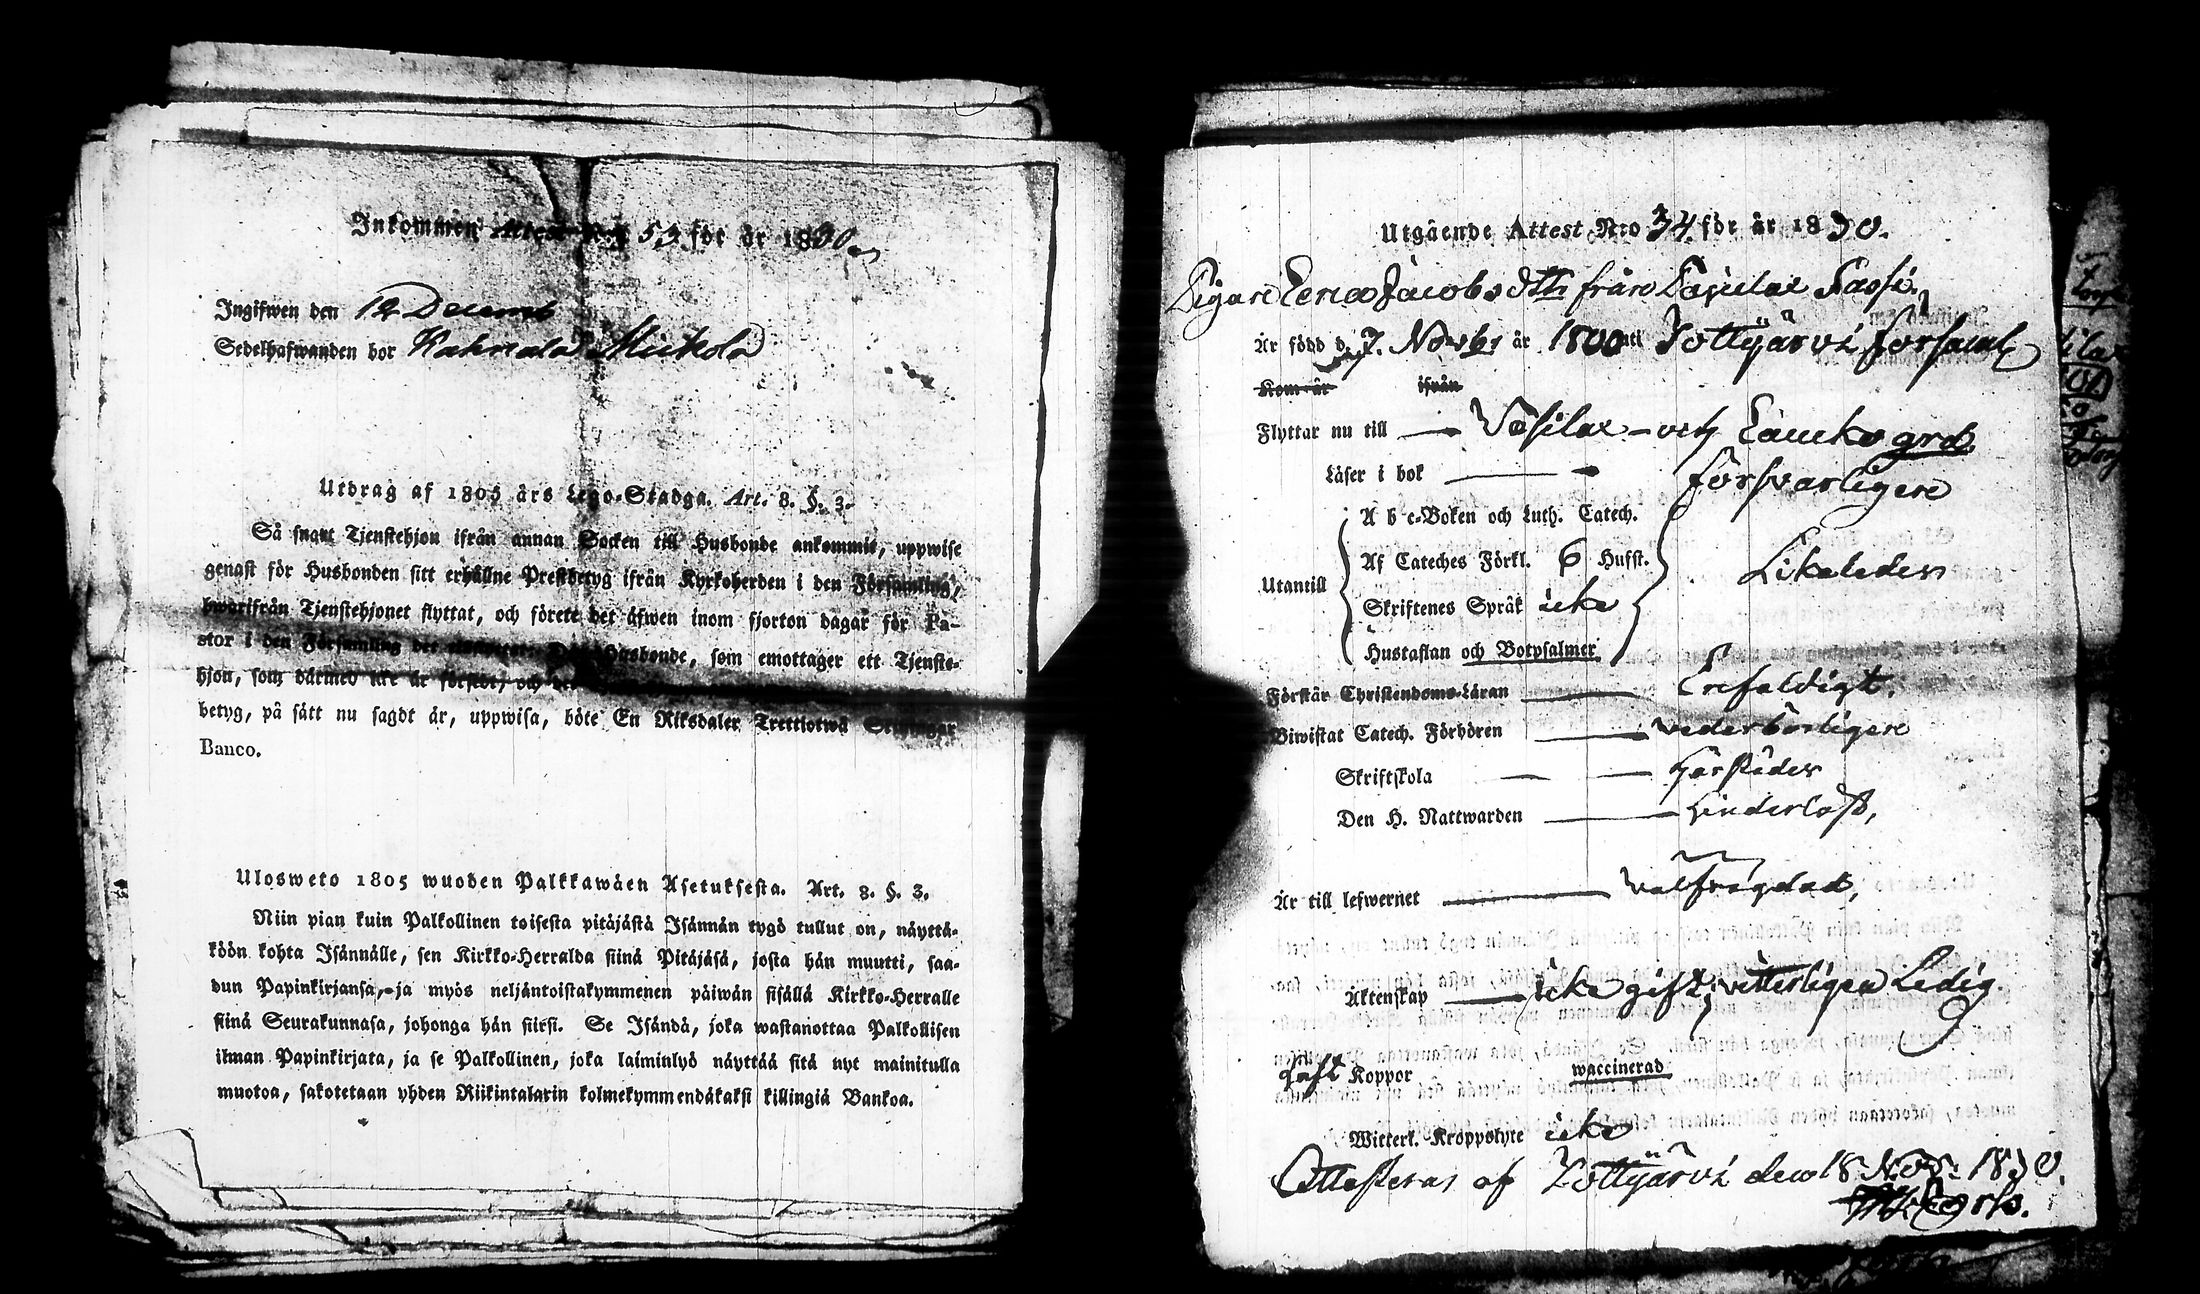 Inkommen Attest N:o 53 för år 1830
Ingifwen den 12 Decemb
Sedelhafwanden bor
Utdrag af 1805 års Lego-Stadga. Art. 8. §. 3.
Så snart Tjenstehjon ifrån annan Socken till Husbonde ankommit, uppwise
genast för Husbonden sitt erhållne Prestbetyg ifrån Kyrkoherden i den Församling,
hwarifrån Tjenstehjonet flyttat, och förete det äfwen inom fjorton dagar för Pa-
stor i den Församling der Husbonde, som emottager ett Tjenste-
hjon, som därmed icke är försedt, och
betyg, på sätt nu sagdt är, uppwisa, böte En Riksdaler Trettiotwå Skillingar
Banco.
Ulosweto 1805 wuoden Palkkawäen Asetuksesta. Art. 8. §. 3.
Niin pian kuin Palkollinen toisesta pitäjästä Isännän tygö tullut on, näyttä-
köön kohta Isännälle, sen Kirkko-Herralda siinä Pitäjäsä, josta hän muutti, saa-
dun Papinkirjansa, ja myös neljäntoistakymmenen päiwän sisällä Kirkko-Herralle
siinä Seurakunnasa, johonga hän siirsi. Se Isändä, joka wastanottaa Palkollisen
ilman Papinkirjata, ja se Palkollinen, joka laiminlyö näyttää sitä nyt mainitulla
muotoa, sakotetaan yhden Riikintalarin kolmekymmendäkaksi killingiä Bankoa.
Utgående Attest N:o 34 för år 1830.
Pigan Lena Jacobsdtr från
Är född d. 7. Novbr år 1800 uti Tottijärvi församl
Kom år ifrån
Flyttar nu till Vesilax
Läser i bok försvarligen
A b c-Boken och Luth. Catech.
Utantill
Af Cateches Förkl. 6 Hufst. Likaledes
Skriftenes Språk icke
Hustaflan och Botpsalmer
Förstår Christendoms-Läran Enfaldigt.
Biwistat Catech. Förhören vederbörligen
Skriftskola härstädes
Den H. Nattwarden hinderlöst,
Är till lefwernet välfrägdad,
Äktenskap icke gift, vitterligen Ledig
haft Koppor waccinerad
Witterl. Kroppslyte icke
Attesteras af Tottijärvi den 18 Nov: 1830.